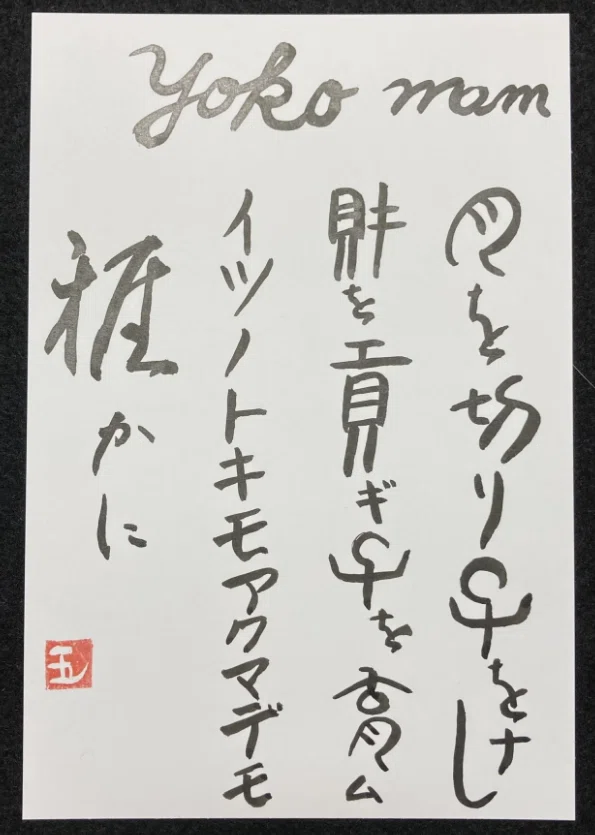 Yoko mam
月を切り子をナし
財を貢ギ子を育ム
イツノトキモアクマデモ
雅かに